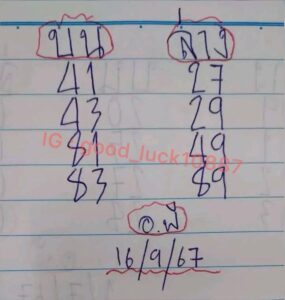 บน ล่าง
41 27
43 29
81 49
83 89
IG : good_luck10887
อ.พี
16/9/67